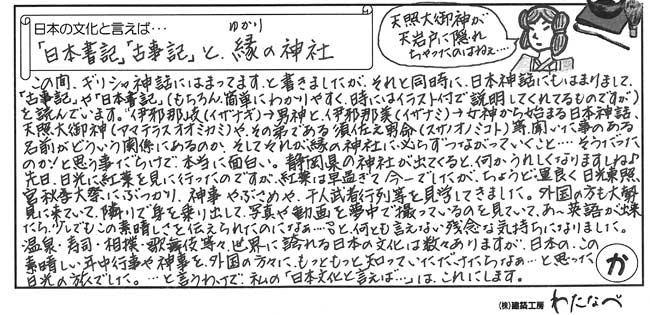 日本の文化と言えば…
ゆかり
「日本書記」「古事記」と、縁の神社
天照大御神が
天岩戸に隠れ
ちゃったのはねぇ…
この間、ギリシャ神話にはまってます、と書きましたが、それと同時に、日本神話にもはまりまして、
「古事記」や「日本書記」(もちろん、簡単にわかりやすく、時にはイラスト付で説明してくれてるものですが)
を読んでいます。伊邪那岐(イザナギ)→男神と、伊邪那美(イザナミ)→女神から始まる日本神話、
天照大御神(アマテラスオオミカミ)や、その弟である須佐之男命(スサノオノミコト)等、聞いた事のある
名前がどういう関係にあるのか、そしてそれが縁の神社に必らずつながっていくこと…そうだった
のか!と思う事だらけで、本当に面白い。静岡県の神社が出てくると、何かうれしくなりますしね♪
先日、日光に紅葉を見に行ったのですが、紅葉は早過ぎて今一でしたが、ちょうど運良く日光東照
宮秋季大祭にぶつかり、神事やぶさめや、千人武者行列等を見学してきました。外国の方も大勢
見に来ていて、隣りで身を乗り出して、写真や動画を夢中で撮っているのを見ていて、あ〜英語が出来
たら、少しでもこの素晴しさを伝えられたのになぁ…。と、何とも言えない残念な気持ちになりました。
温泉・寿司・相撲・歌舞伎等々、世界に誇れる日本の文化は数々ありますが、日本の、この
素晴しい年中行事や神事を、外国の方々に、もっともっと知っていただけたらなぁ…と思った
日光の旅でした。…と言うわけで、私の「日本文化と言えば…」は、これにします。
か
(株)建築工房 わたなべ